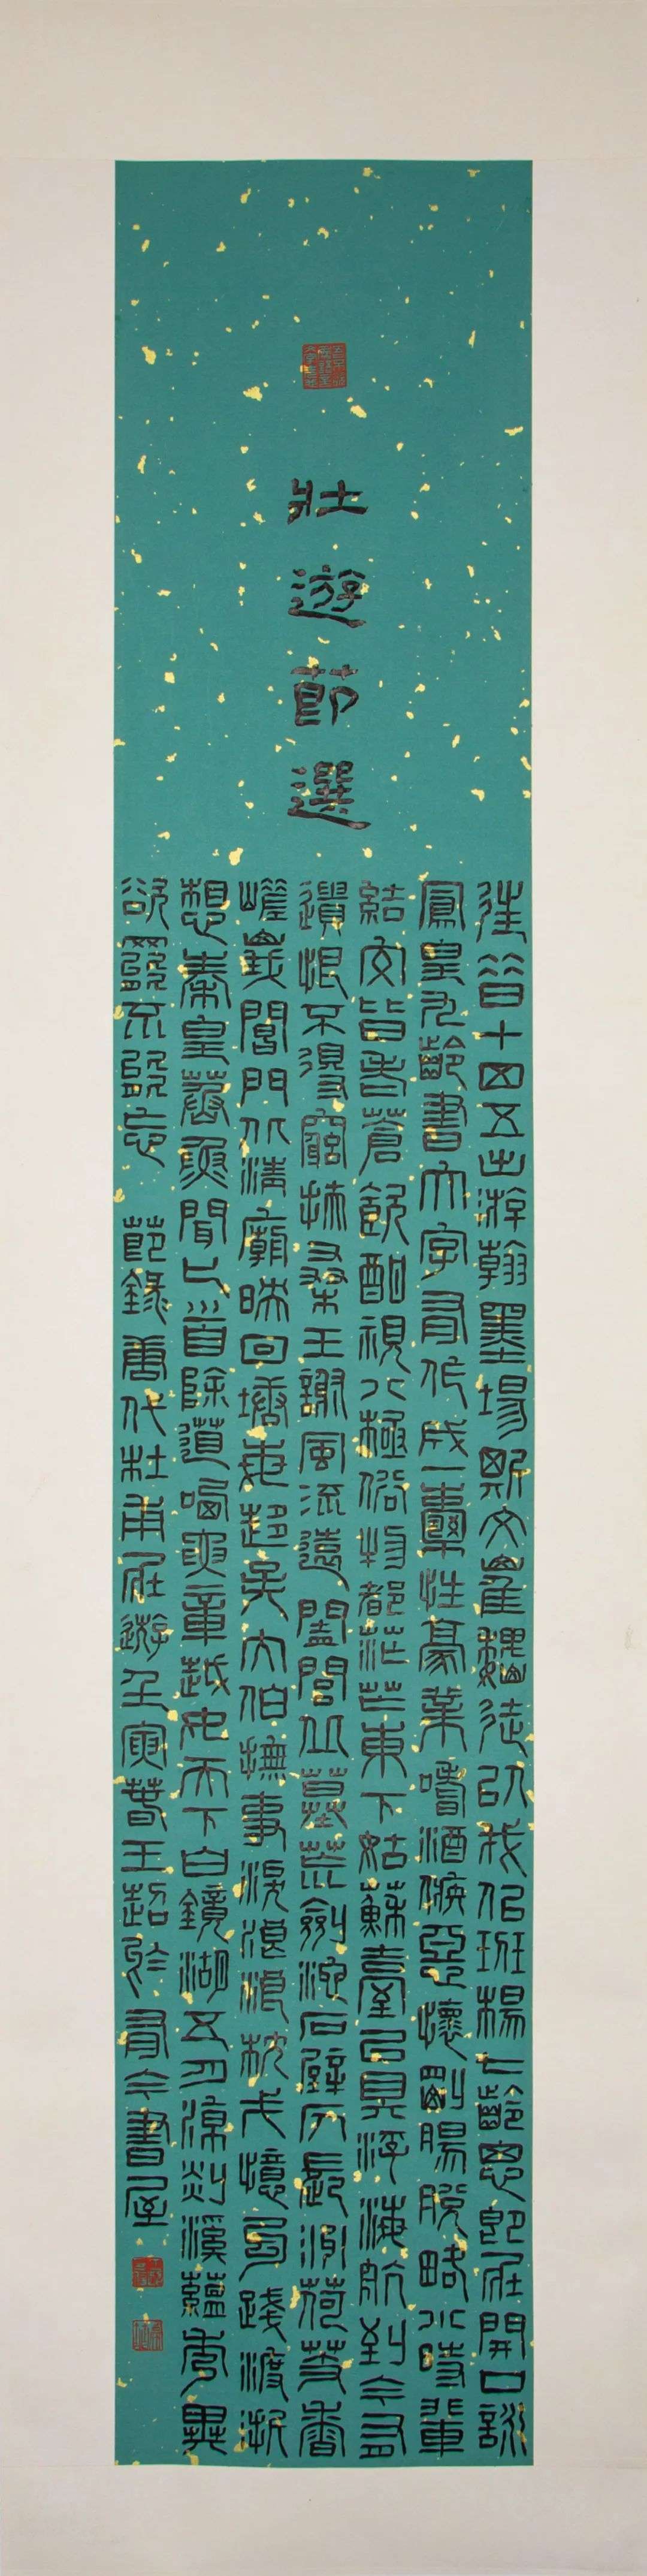 壯遊節選
往昔十四五出游翰墨場斯文崔魏徒以我佀班楊七齡思即壯開口詠
鳳皇九齡書大字有作成一囊性豪業嗜酒嫉惡懷剛腸脫略小時輩
結交皆老蒼飲酣視八極俗物都茫茫東下姑蘇臺已具浮海航到今有
遺恨不得窮扶桑王謝風流遠闔閭丘墓荒劍池石壁仄長洲荷芰香
嵯峨閶門北清廟映回塘每趨吳太伯撫事淚浪浪枕戈憶勾踐渡浙
想秦皇蒸魚聞匕首除道哂要章越女天下白鏡湖五月涼剡溪蘊秀異
欲罷不能忘 節錄唐代杜甫壯遊壬寅春王超於有今書屋